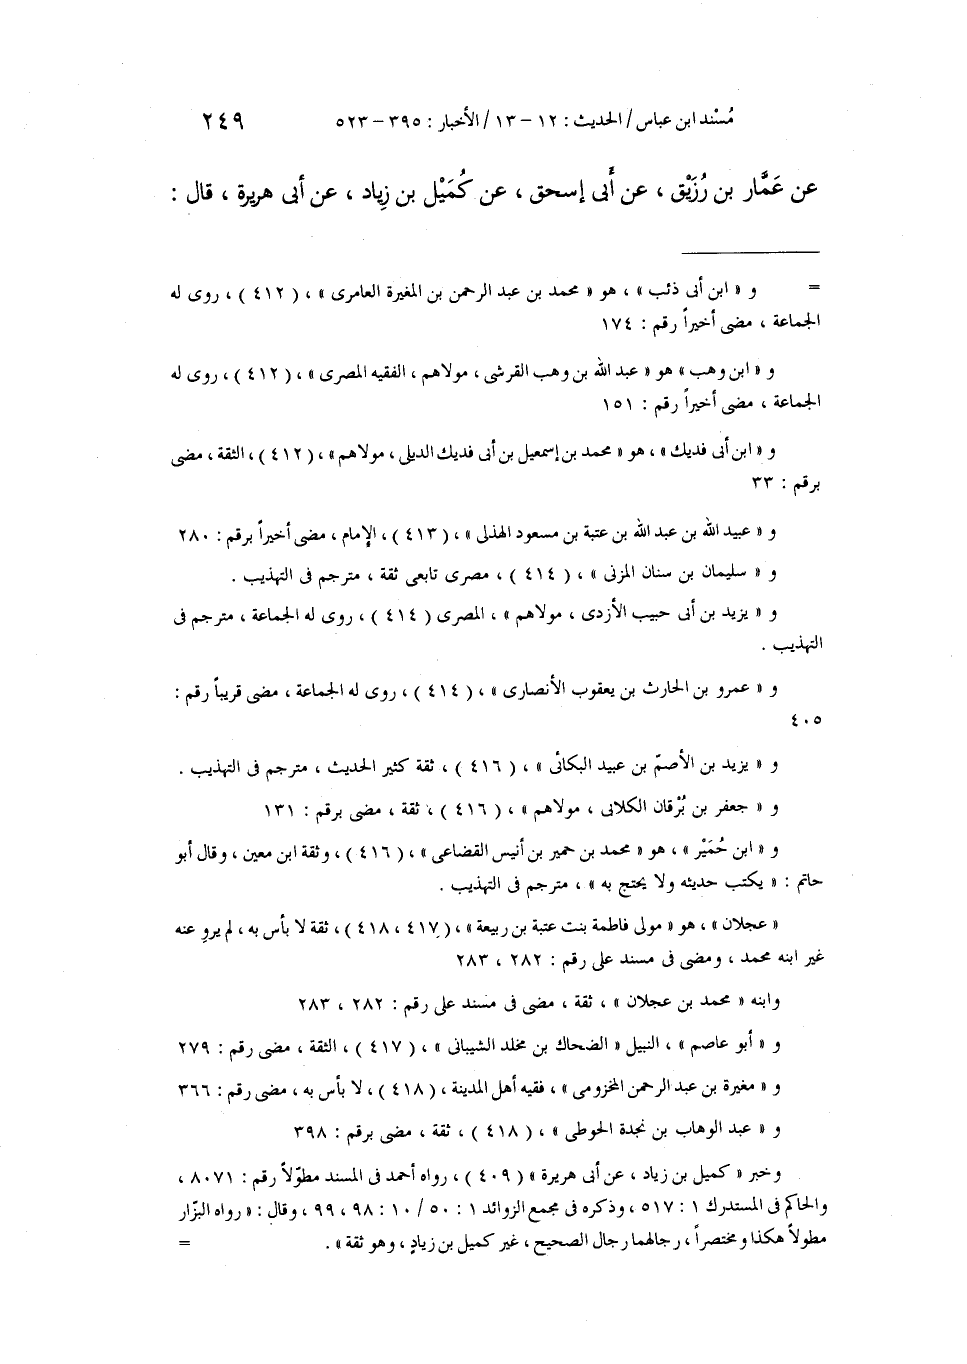 مُسْند ابن عباس / الحديث : ١٢ – ١٣ / الأخبار : ٣٩٥ – ٥٢٣ ٢٤٩
عن عَمَّار بن رُزَيْق ، عن أَبى إسحق ، عن كُمَيْل بن زِياد ، عن أبى هريرة ، قال :
= و « ابن أبى ذئب » ، هو « محمد بن عبد الرحمن بن المغيرة العامرى » ، ( ٤١٢ ) ، روى له
الجماعة ، مضى أخيراً رقم : ١٧٤
و « ابن وهب » هو « عبد الله بن وهب القرشى ، مولاهم ، الفقيه المصرى » ، ( ٤١٢ ) ، روى له
الجماعة ، مضى أخيراً رقم : ١٥١
و « ابن أبى فديك » ، هو « محمد بن إسمعيل بن أبى فديك الديلى ، مولاهم » ، ( ٤١٢ ) ، الثقة ، مضى
برقم : ٣٣
و « عبيد الله بن عبد الله بن عتبة بن مسعود الهذلى » ، ( ٤١٣ ) ، الإمام ، مضى أخيراً برقم : ٢٨٠
و « سليمان بن سنان المزنى » ، ( ٤١٤ ) ، مصرى تابعى ثقة ، مترجم فى التهذيب .
و « يزيد بن أبى حبيب الأزدى ، مولاهم » ، المصرى ( ٤١٤ ) ، روى له الجماعة ، مترجم فى
التهذيب .
و « عمرو بن الحارث بن يعقوب الأنصارى » ، ( ٤١٤ ) ، روى له الجماعة ، مضى قريباً رقم :
٤٠٥
و « يزيد بن الأصمّ بن عبيد البكائى » ، ( ٤١٦ ) ، ثقة كثير الحديث ، مترجم فى التهذيب .
و « جعفر بن بُرْقان الكلابى ، مولاهم » ، ( ٤١٦ ) ، ثقة ، مضى برقم : ١٣١
و « ابن حُمَيْر » ، هو « محمد بن حمير بن أنيس القضاعى » ، ( ٤١٦ ) ، وثقة ابن معين ، وقال أبو
حاتم : « يكتب حديثه ولا يحتج به » ، مترجم فى التهذيب .
« عجلان » ، هو « مولى فاطمة بنت عتبة بن ربيعة » ، ( ٤١٧ ، ٤١٨ ) ، ثقة لا بأس به ، لم يروِ عنه
غير ابنه محمد ، ومضى فى مسند على رقم : ٢٨٢ ، ٢٨٣
وابنه « محمد بن عجلان » ، ثقة ، مضى فى مسند على رقم : ٢٨٢ ، ٢٨٣
و « أبو عاصم » ، النبيل « الضحاك بن مخلد الشيبانى » ، ( ٤١٧ ) ، الثقة ، مضى رقم : ٢٧٩
و « مغيرة بن عبد الرحمن المخزومى » ، فقيه أهل المدينة ، ( ٤١٨ ) ، لا بأس به ، مضى رقم : ٣٦٦
و « عبد الوهاب بن نجدة الحوطى » ، ( ٤١٨ ) ، ثقة ، مضى برقم : ٣٩٨
وخبر « كميل بن زياد ، عن أبى هريرة » ( ٤٠٩ ) ، رواه أحمد فى المسند مطوّلاً رقم : ٨٠٧١ ،
والحاكم فى المستدرك ١ : ٥١٧ ، وذكره فى مجمع الزوائد ١ : ٥٠ / ١٠ : ٩٨ ، ٩٩ ، وقال : « رواه البزّار
مطولاً هكذا ومختصراً ، رجالهما رجال الصحيح ، غير كميل بن زيادٍ ، وهو ثقة » . =